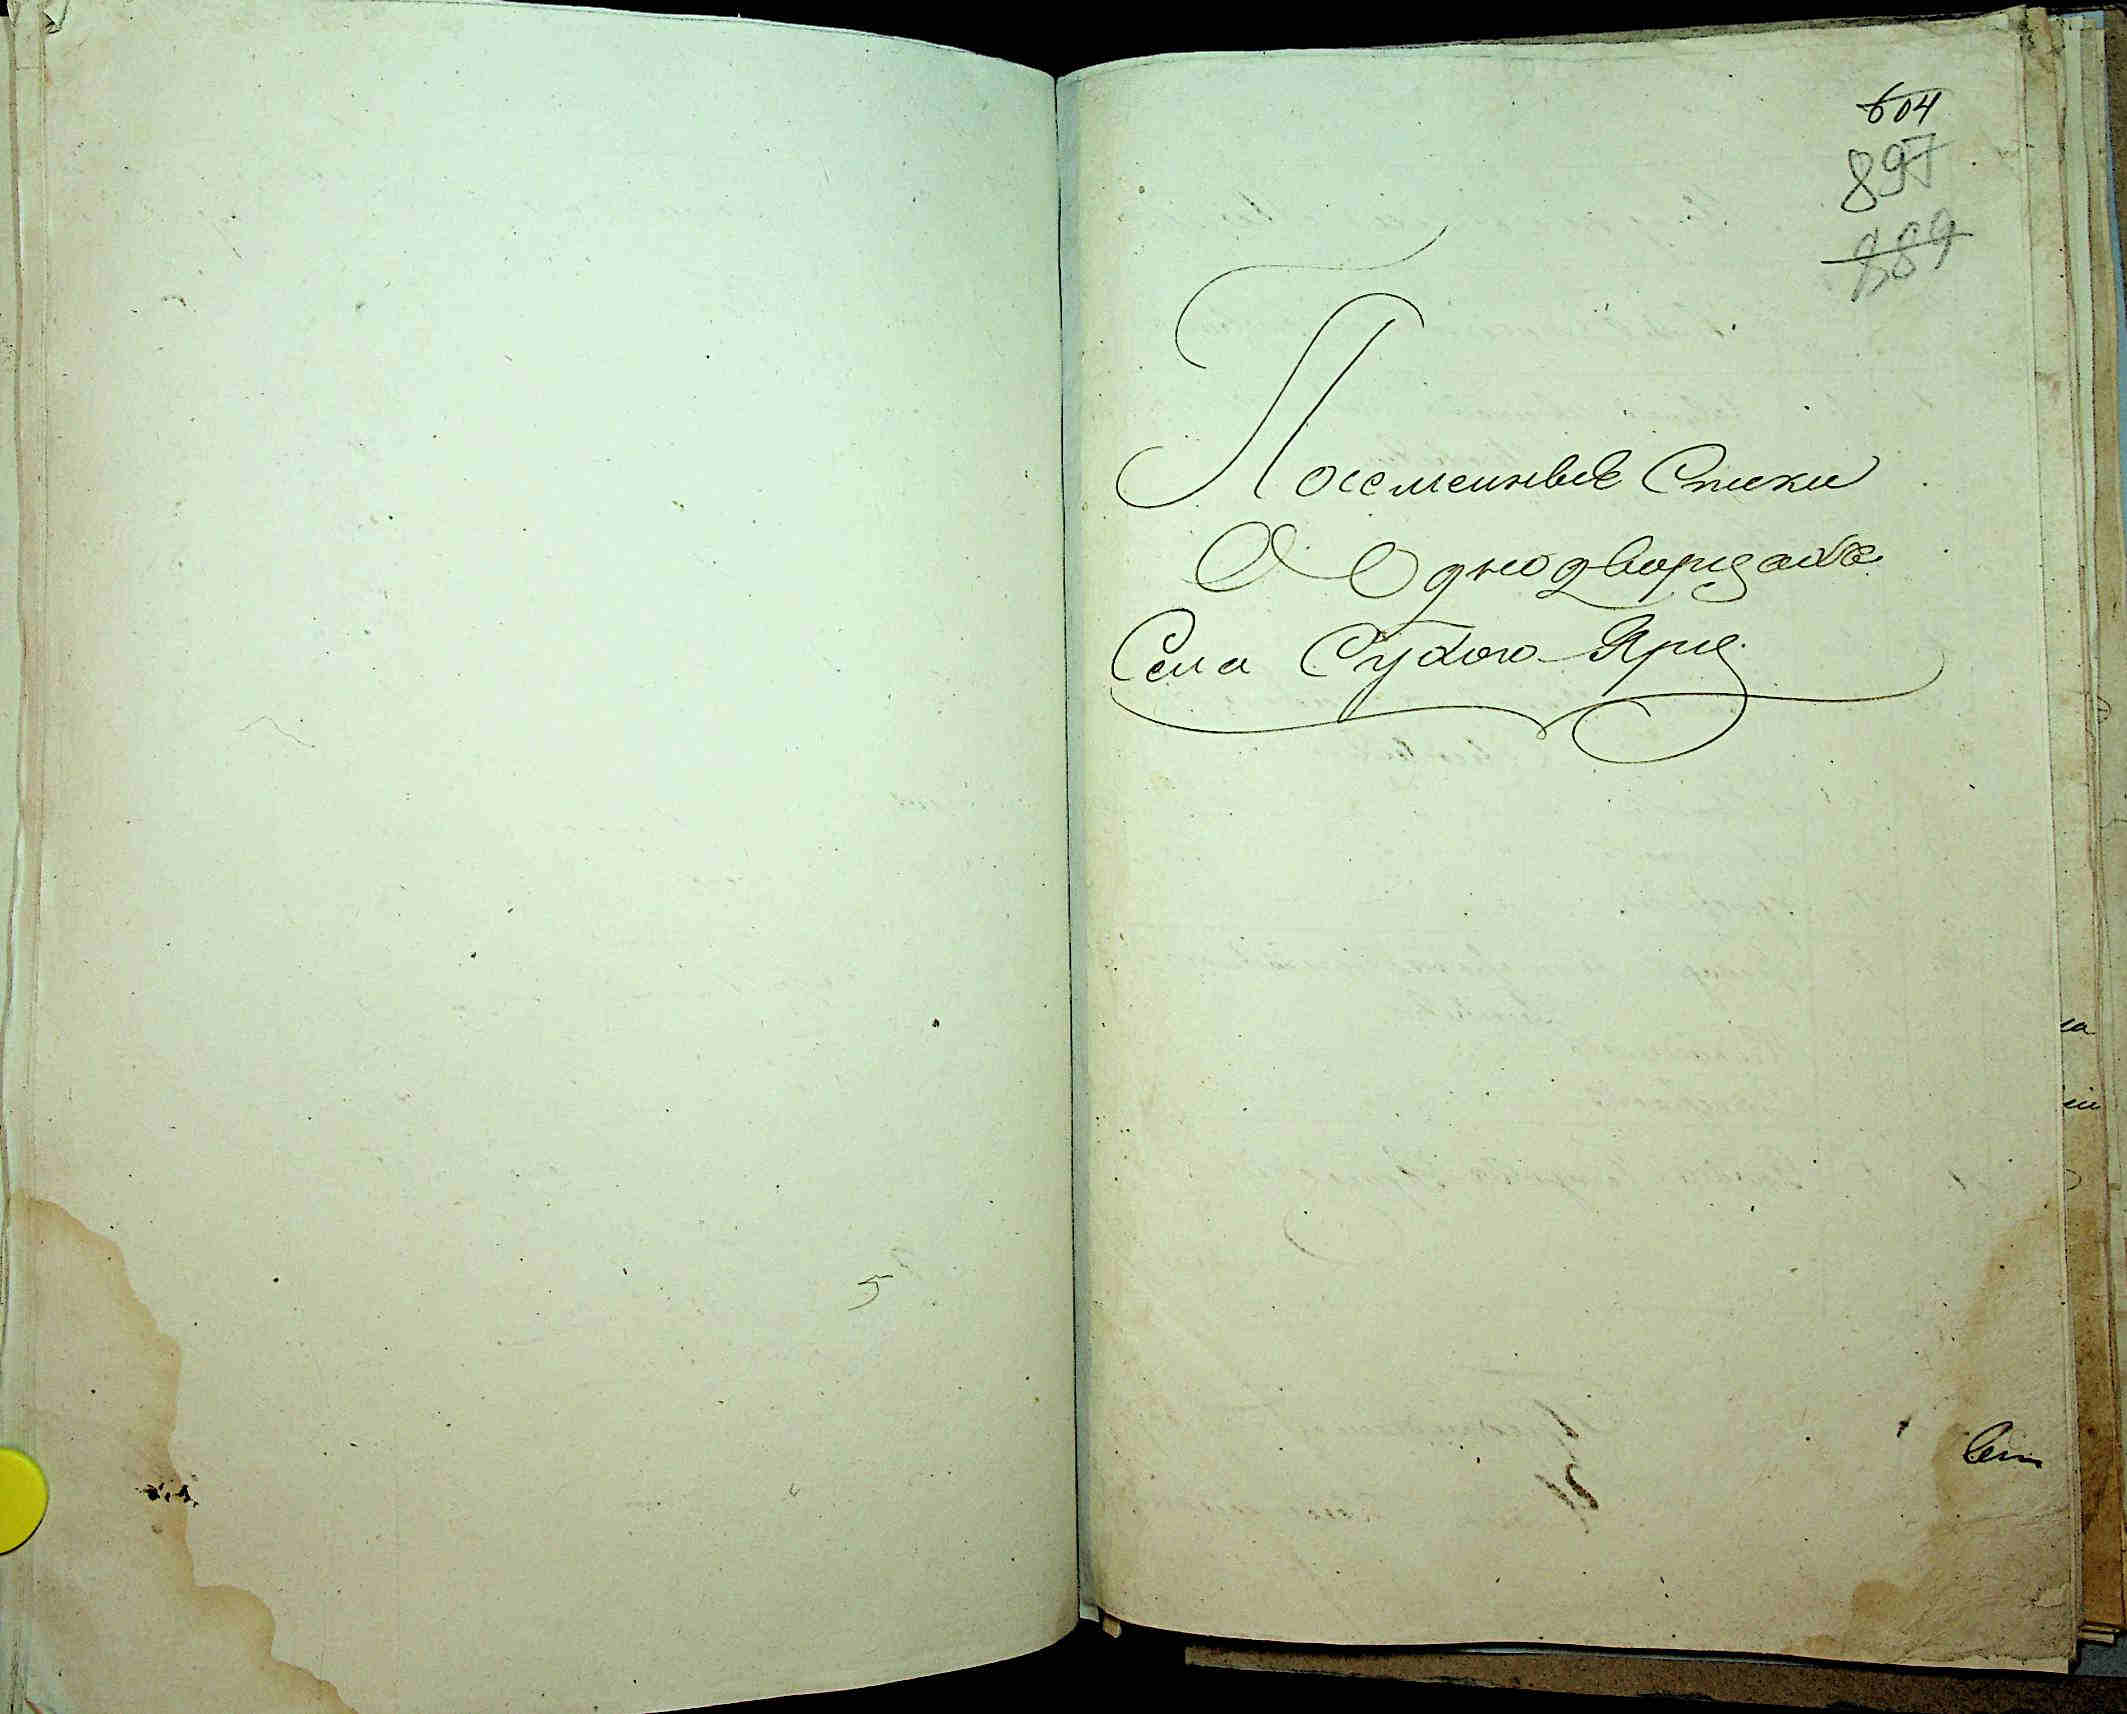 604
897
889
Посемейные Списки
О Однодворцахъ
Села Сухого Яра
5
Сет